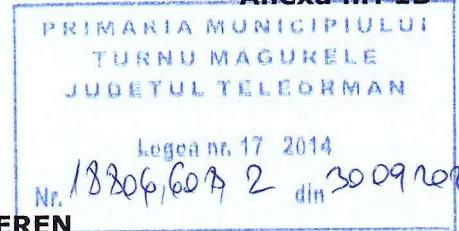 Anexa nr. 1B
PRIMARIA MUNICIPIULUI
TURNU MAGURELE
JUDETUL TELEORMAN
Legea nr. 17 2014
Nr. 2 din 30 09
EREN